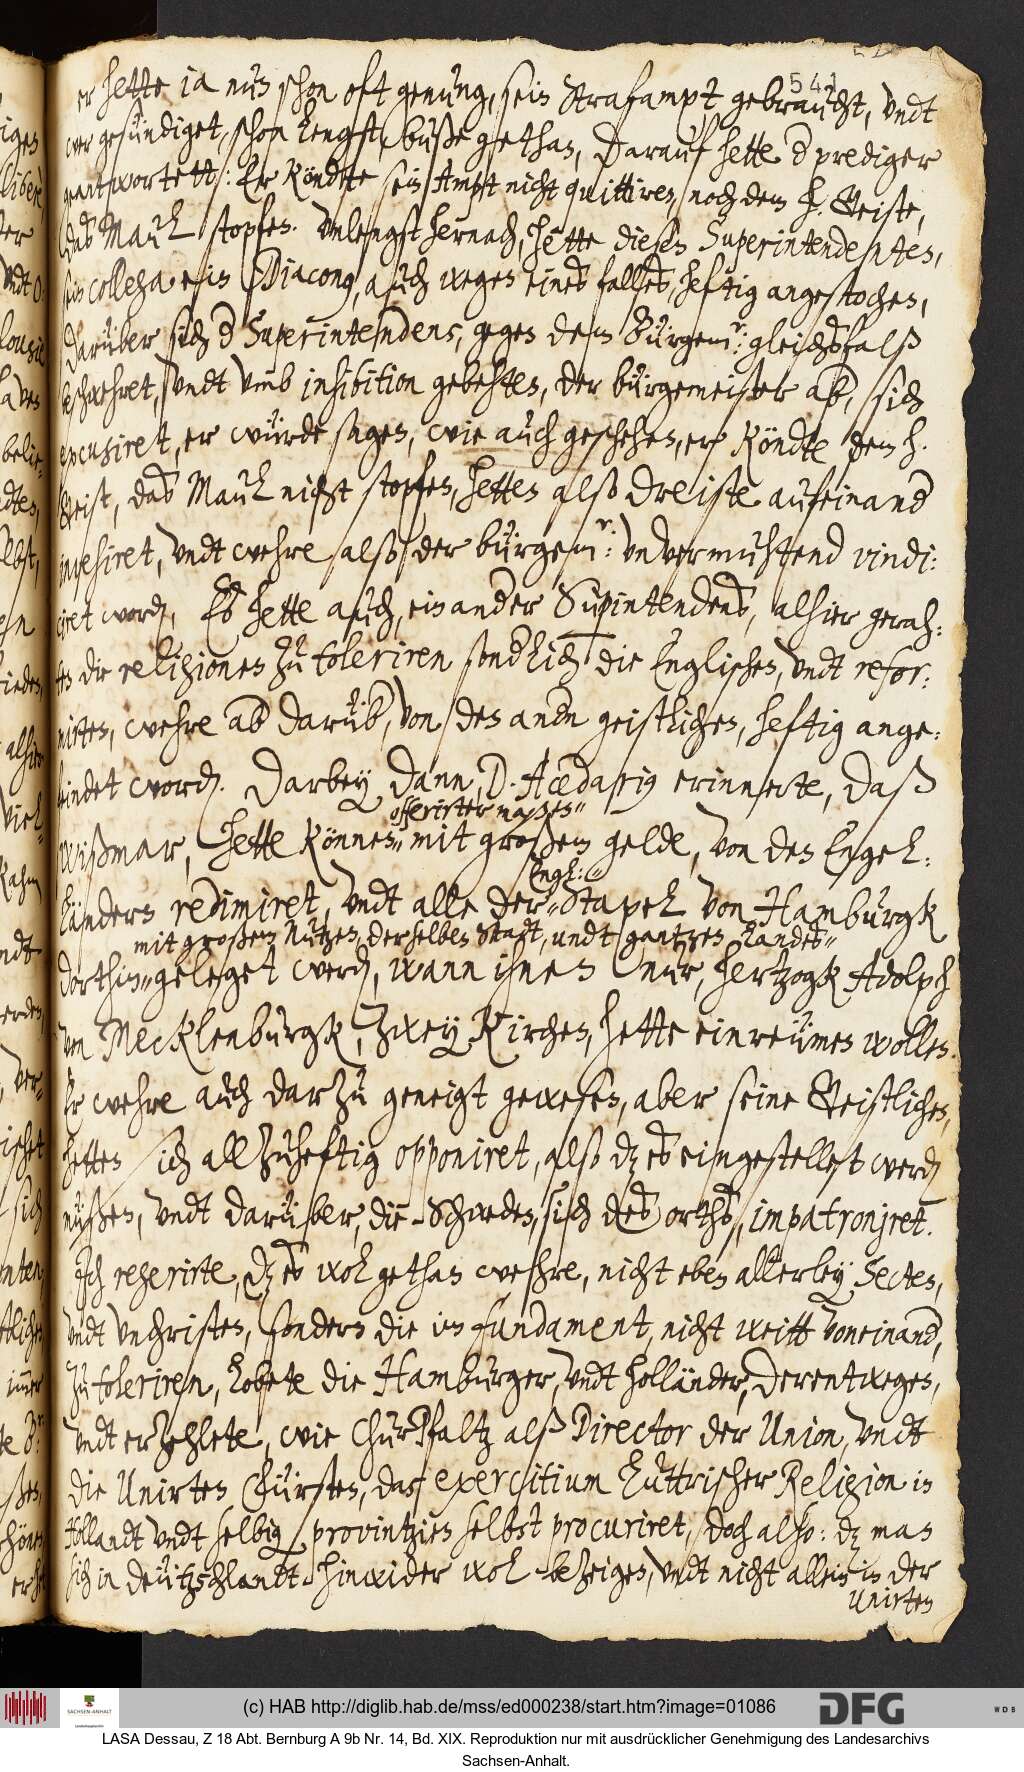 541
er hette ia nun schon oft genung, sein Strafampt gebraucht, undt
wer gesündiget, schon lengst, buße gethan, Darauf hette d prediger
geantwortett: Er köndte sein Ampt nicht quittiren, noch dem h. Geiste,
das Maul stopfen. Unlengst hernach, hette diesen Superintendenten,
sein collega ein Diaconus, auch wegen eines falles, heftig angestochen,
Darüber sich d Superintendens, gegen dem Bürgemr: gleichsfalß
beschwehret, undt umb inhibition gebehten, der bürgemeister ab, sich
excusiret, er würde sagen, wie auch geschehen, er köndte dem h.
Geist, das Maul nicht stopfen, hetten also dreiste aufeinand
invehiret, undt wehre also der bürgemr: unvermuhtend vindi:
ciret word, Es hette auch, ein ander Supintendens, alhier gerah:
ten die religionen zu toleriren sondlich die Englischen, undt refor:
mirten, wehre ab darüb, von den andn geistlichen, heftig ange:
feindet word. Darbey dann, D. Acedasius erinnerte, daß
offerirter maßen
Wißmar, hette können mit großem gelde, von den Engel:
Engl:
ländern redimiret, undt alle der Stapel von Hamburgk
mit großem Nutzen, derselben Stadt, undt gantzen Landes
dorthin geleget werd, wann ihnen nur, hertzogk Adolph
von Mecklenburgk, zwey Kirchen, hette einreümen wollen.
Er wehre auch darzu geneigt gewesen, aber seine Geistlichen,
hetten sich allzuheftig opponiret, also dz es eingestellet werd
müßen, undt darüber, die Schweden, sich des orths, impatroniret.
Ich regerirte, dz es wol gethan wehre, nicht eben allerley Secten,
undt unchristen, sondern die in fundament, nicht weitt voneinand,
zu toleriren, Lobete die Hamburger, undt Holländer, Derentwegen,
undt erzehlete, wie ChurPfaltz alß Director der Union, undt
die Unirten Fürsten, das exercitium Luttrischer Religion in
Hollandt undt selbig provintzien selbst procuriret, doch also: dz man
sich in deützschlandt hinwider wol bezeigen, undt nicht allein in der
Unirten
(c) HAB http://diglib.hab.de/mss/ed000238/start.htm?image=01086
DFG
WDB
SACHSEN-ANHALT
LASA Dessau, Z 18 Abt. Bernburg A 9b Nr. 14, Bd. XIX. Reproduktion nur mit ausdrücklicher Genehmigung des Landesarchivs
Sachsen-Anhalt.